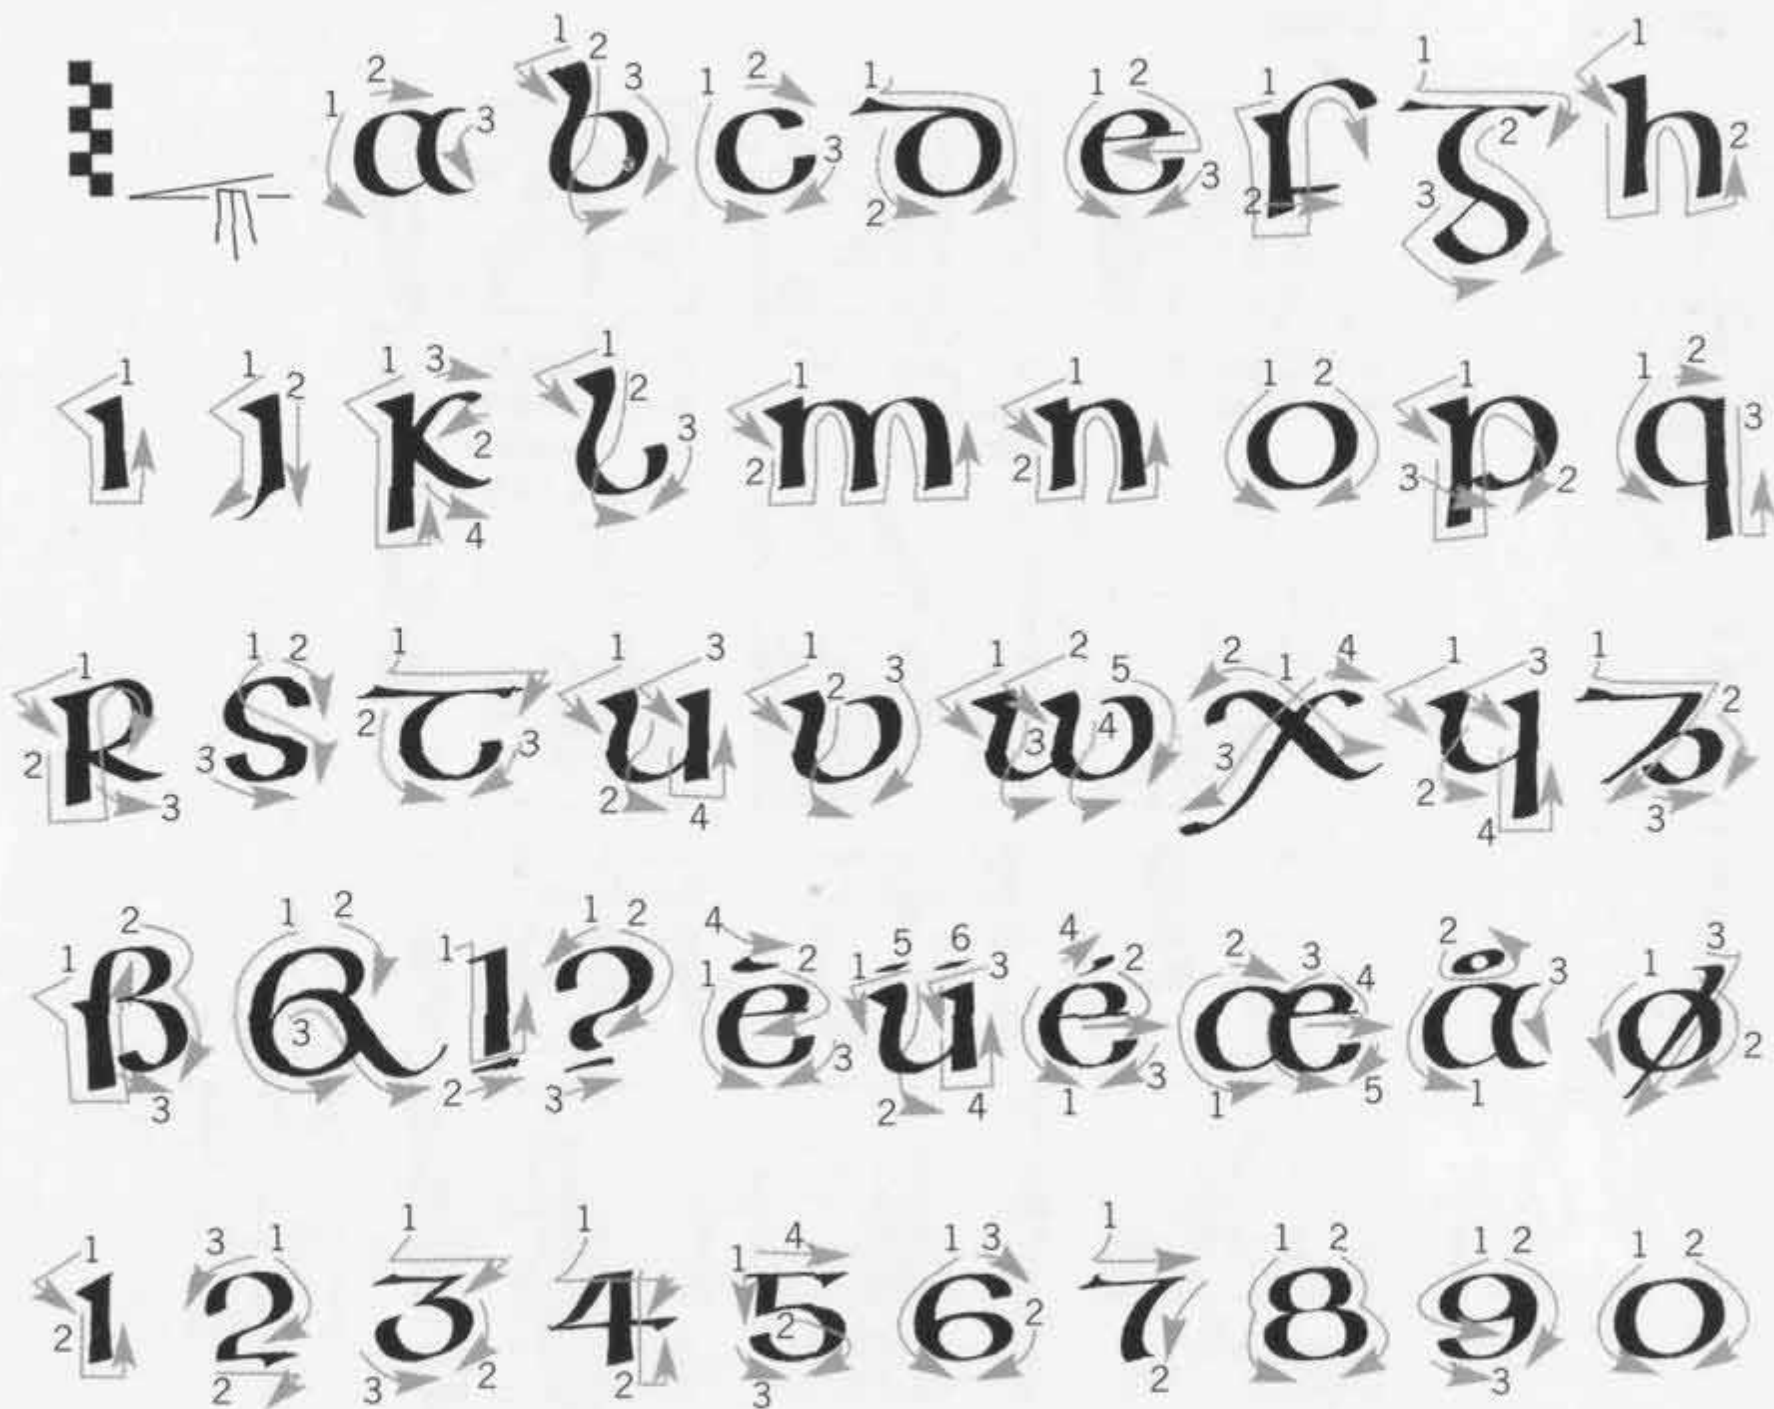 a b c d e f g h
ı ȷ k l m n o p q
r s t u v w x y z
ß & ! ? è ű é æ å ø
1 2 3 4 5 6 7 8 9 0